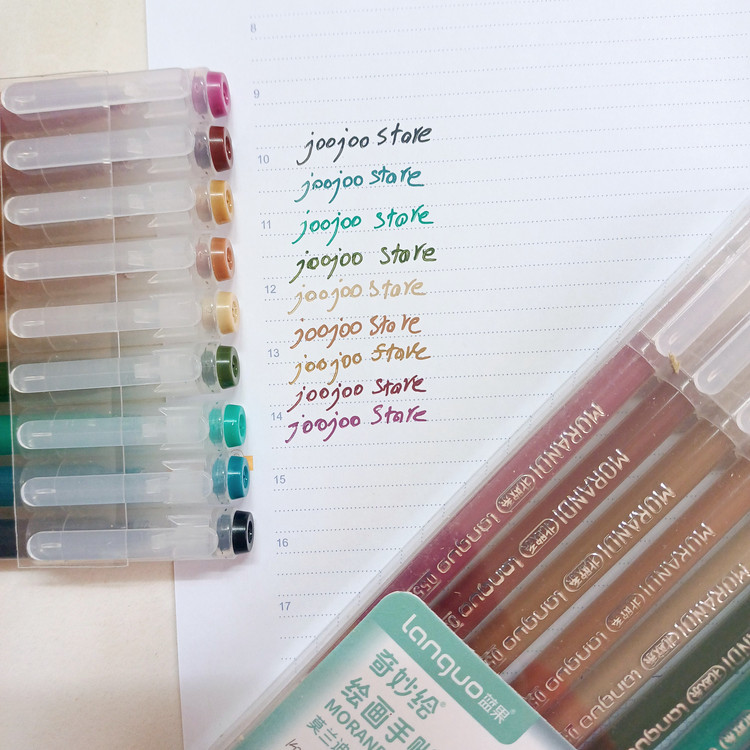 8
9
10
11
12
13
14
15
16
17
joojoo Store
joojoo Store
joojoo Store
joojoo Store
joojoo Store
joojoo Store
joojoo Store
joojoo Store
joojoo Store
MORANDI languo
MORANDI languo
MORANDI languo
MORANDI languo
MORANDI languo
languo 蓝果
奇妙绘
绘画手帐
MORAND
莫兰迪